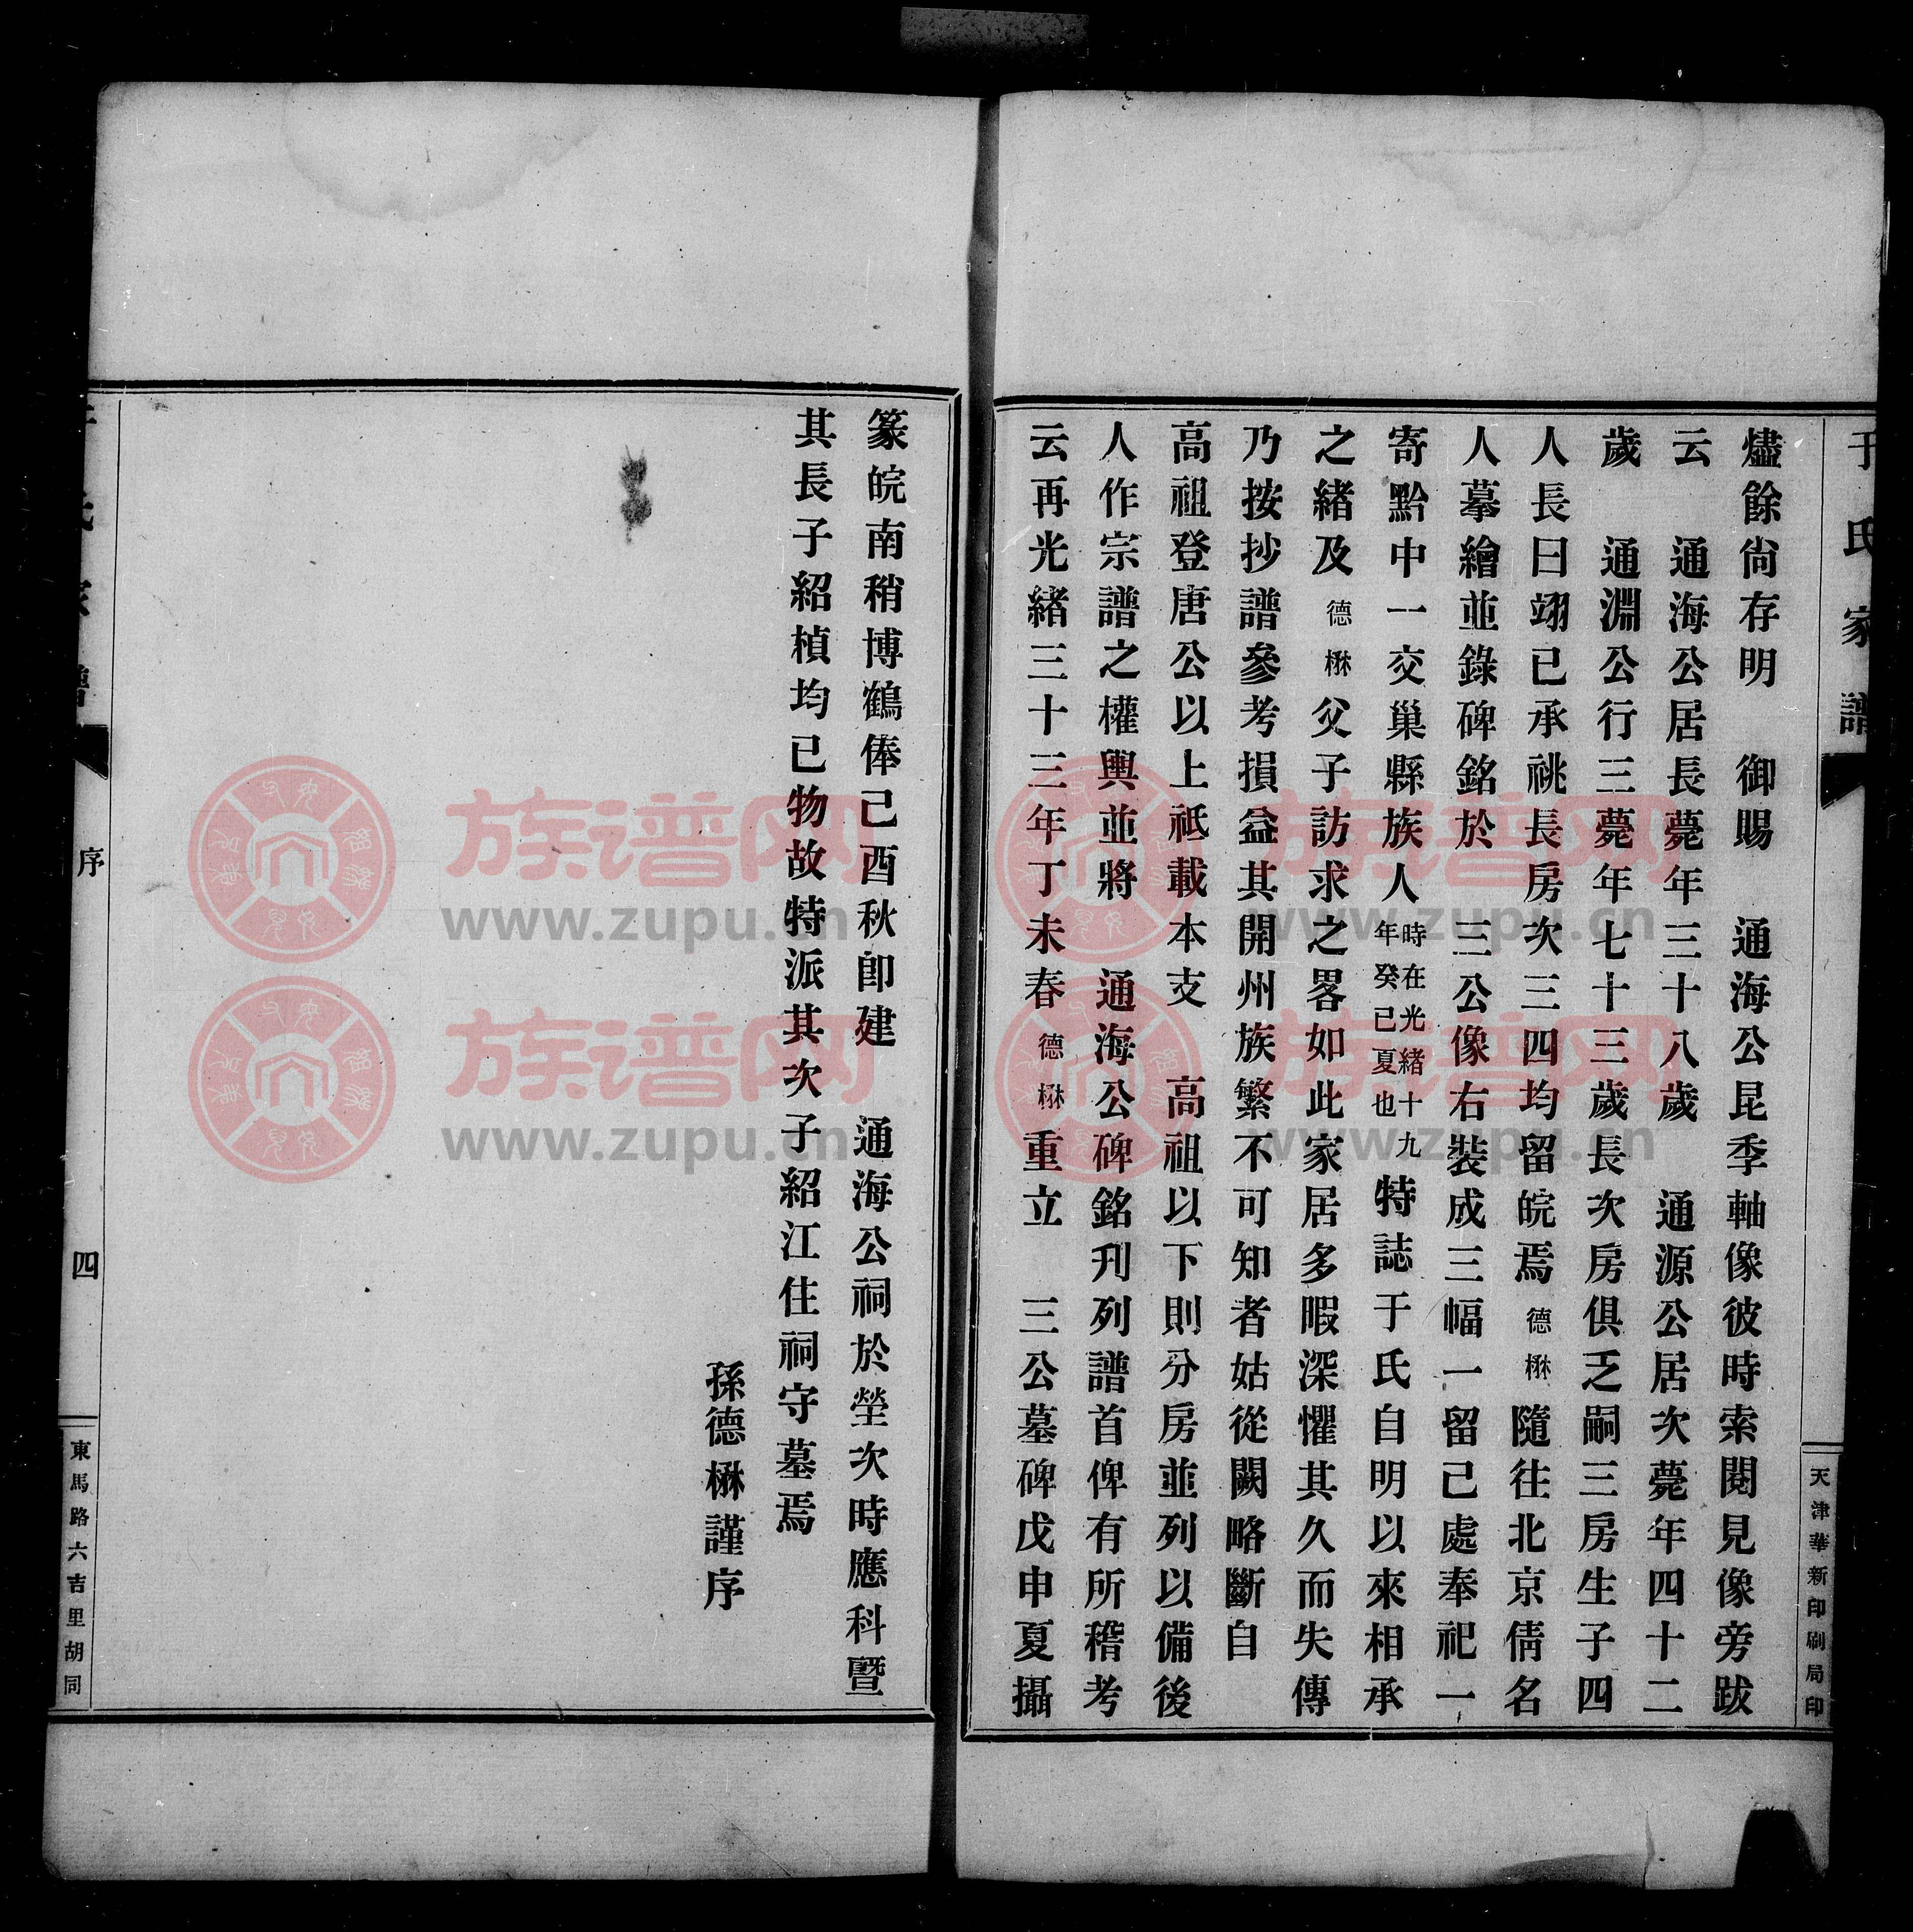 于氏家譜
天津華新印刷局印
燼餘尙存明　御賜　通海公昆季軸像彼時索閱見像旁跋
云　通海公居長薨年三十八歲　通源公居次薨年四十二
歲　通淵公行三薨年七十三歲長次房俱乏嗣三房生子四
人長曰翊已承祧長房次三四均留皖焉德楙隨往北京倩名
人摹繪並錄碑銘於　三公像右裝成三幅一留己處奉祀一
寄黔中一交巢縣族人時在光緒十九年癸巳夏也特誌于氏自明以來相承
之緒及德楙父子訪求之畧如此家居多暇深懼其久而失傳
乃按抄譜參考損益其開州族繁不可知者姑從闕略斷自
高祖登唐公以上祗載本支　高祖以下則分房並列以備後
人作宗譜之權輿並將　通海公碑銘刋列譜首俾有所稽考
云再光緒三十三年丁未春德楙重立　三公墓碑戊申夏攝
篆皖南稍博鶴俸己酉秋卽建　通海公祠於塋次時應科曁
其長子紹楨均已物故特派其次子紹江住祠守墓焉
孫德楙謹序
序
四
東馬路六吉里胡同
族谱网
www.zupu.cn
族谱网
www.zupu.cn
族谱网
www.zupu.cn
族谱网
www.zupu.cn